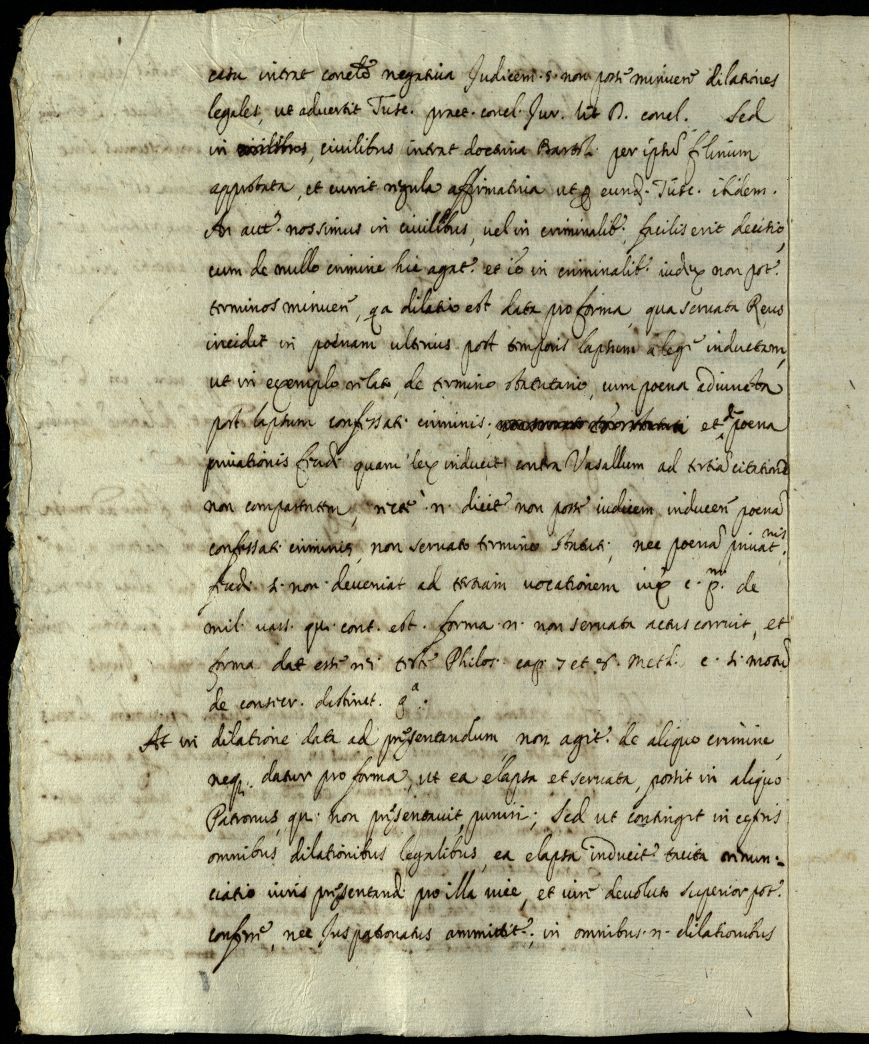 casu intrat negativa Judicem .s. non posse minuere dilationes
legales, ut advertit Tusc. pract. concl. Jur. lit D. concl. Sed
in civilibus intrat doctrina Bart. per ipsum
approbata, et currit regula affirmativa ut eund. Tusc. ibidem.
An aut. nos simus in civilibus, vel in criminalib., facilis erit decisio,
cum de nullo crimine hic agat. et in criminalib. iudex non pot.
terminos minuere, qa dilatio est data pro forma, qua servata Reus
incidit in poenam ulterius post temporis lapsum a lege inductam,
ut in exemplo relato, de termino statutario, cum poena adiuncta
post lapsum confessati criminis, et de poena
privationis feudi quam lex inducit contra Vasallum ad tertia citatione
non comparentem, recte .n. dicit non posse iudicem inducere poena
confessati criminis, non servato termino statuti, nec poena privatnis
feudi si non deveniat ad tertiam vocationem iux c. pm. de
mil. vass. qui cont. est. forma .n. non servata actus corruit, et
forma dat esse rei teste Philos. cap. 7 et 8. Meth. c. si
de consecr. distinct. 
At in dilatione data ad presentandum non agit. de aliquo crimine,
neq. datur pro forma, ut ea elapsa et servata, possit in aliquo
Patronus, qui non presentavit, puniri; Sed ut contingit in ceteris
omnibus dilationibus legalibus, ea elapsa inducit. tacita renun-
ciatio iuris presentandi pro illa vice, et iure devoluto superior pot.
conferre, nec Juspatronatus ammittit., in omnibus .n. dilationibus